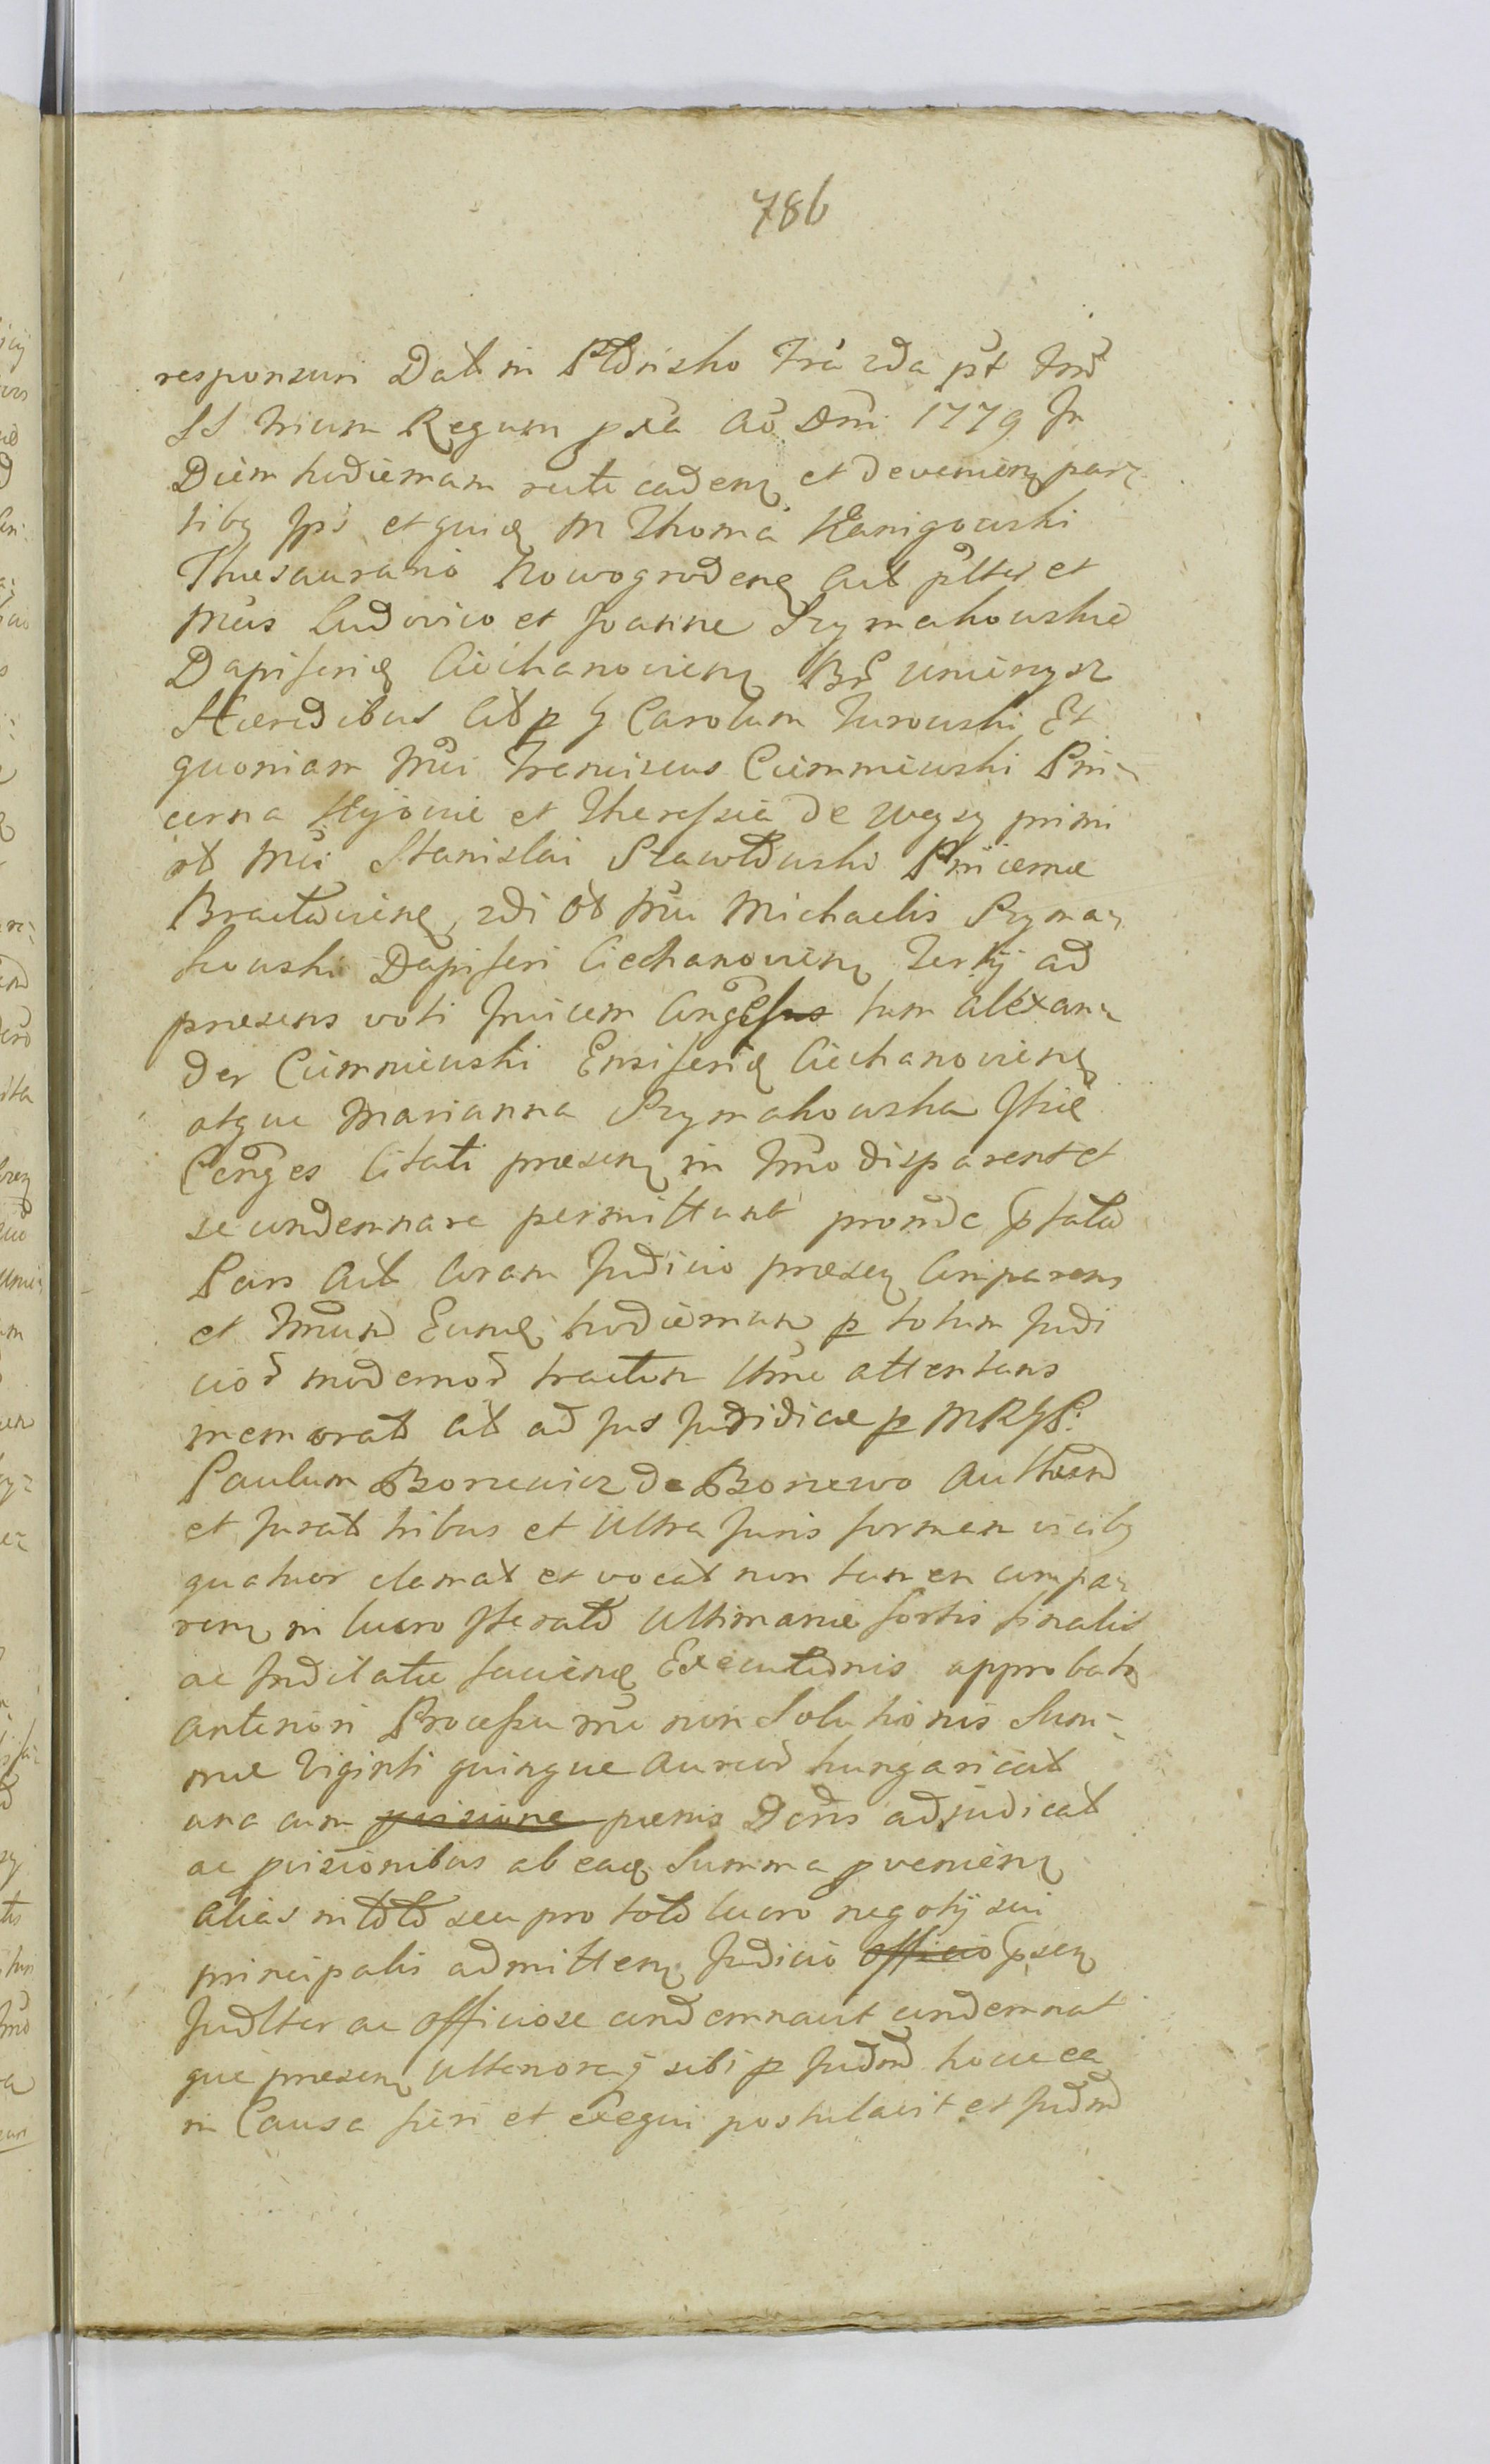 786
responsuri Dat in Płońsko fra 2da pt fest
SS trium Regum pxa Ao Dni 1779 In
Diem hodiernam recte caden et devenien par-
tibq Ips et quidq M Thoma Kanigowski
Thesaurario Nowogroden Act plter et
Mcis Ludovico et Joanne Szymakowskie
Dapiferidq Ciechanovien BP Umienysz
Hæredibus Cit p G Carolum Turowski Et
quoniam Mci Franciscus Ciemniewski Pin-
cerna Kijovie et Theressia de Wessy primi
ot Mci Stanislai Szawłowski Pincernæ
Braclavien, 2di Ot Mci Michaelis Szyma-
kowski Dapiferi Ciechanovien Tertij ad
præsens voti Invicem Conges tum Alexan-
der Ciemniewski Ensiferidq Ciechanovien
atque Marianna Szymakowska
Conges Citati præsen in Tmno disparent et
se condemnare permittunt proinde pfata
Pars Act Coram Judicio præsen Comparens
et Tmnum Eundq hodiernum p totum Judi
cior modernor tractum Ulme attentans
memorat Cit ad Jus Juridice p MRGP:
Paulum Boniewicz de Boniewo Authenm
et Jurat tribus et Ultra Juris formam vicibq
quatuor clamat et vocat non tamen compa-
ren in lucro Iterato Ultimarie fortis finalis
ac Judicatæ facien Executionis approbato
Anteriori Processu rne non Solutionis Sum-
mæ Viginti quinque Aureor hungaricat
una cum provisione pœnis Dcris adjudicat
ac pvisionibus ab eadq Summa pvenien
Alias in toto seu pro toto lucro negotij sui
principalis admitten Judicio officio psen
Judlter ac Officiose condemnavit condemnat
que præsen Ulteriorej sibi p Judm hocce ea
in Causa fieri et exequi postulavit et Judm